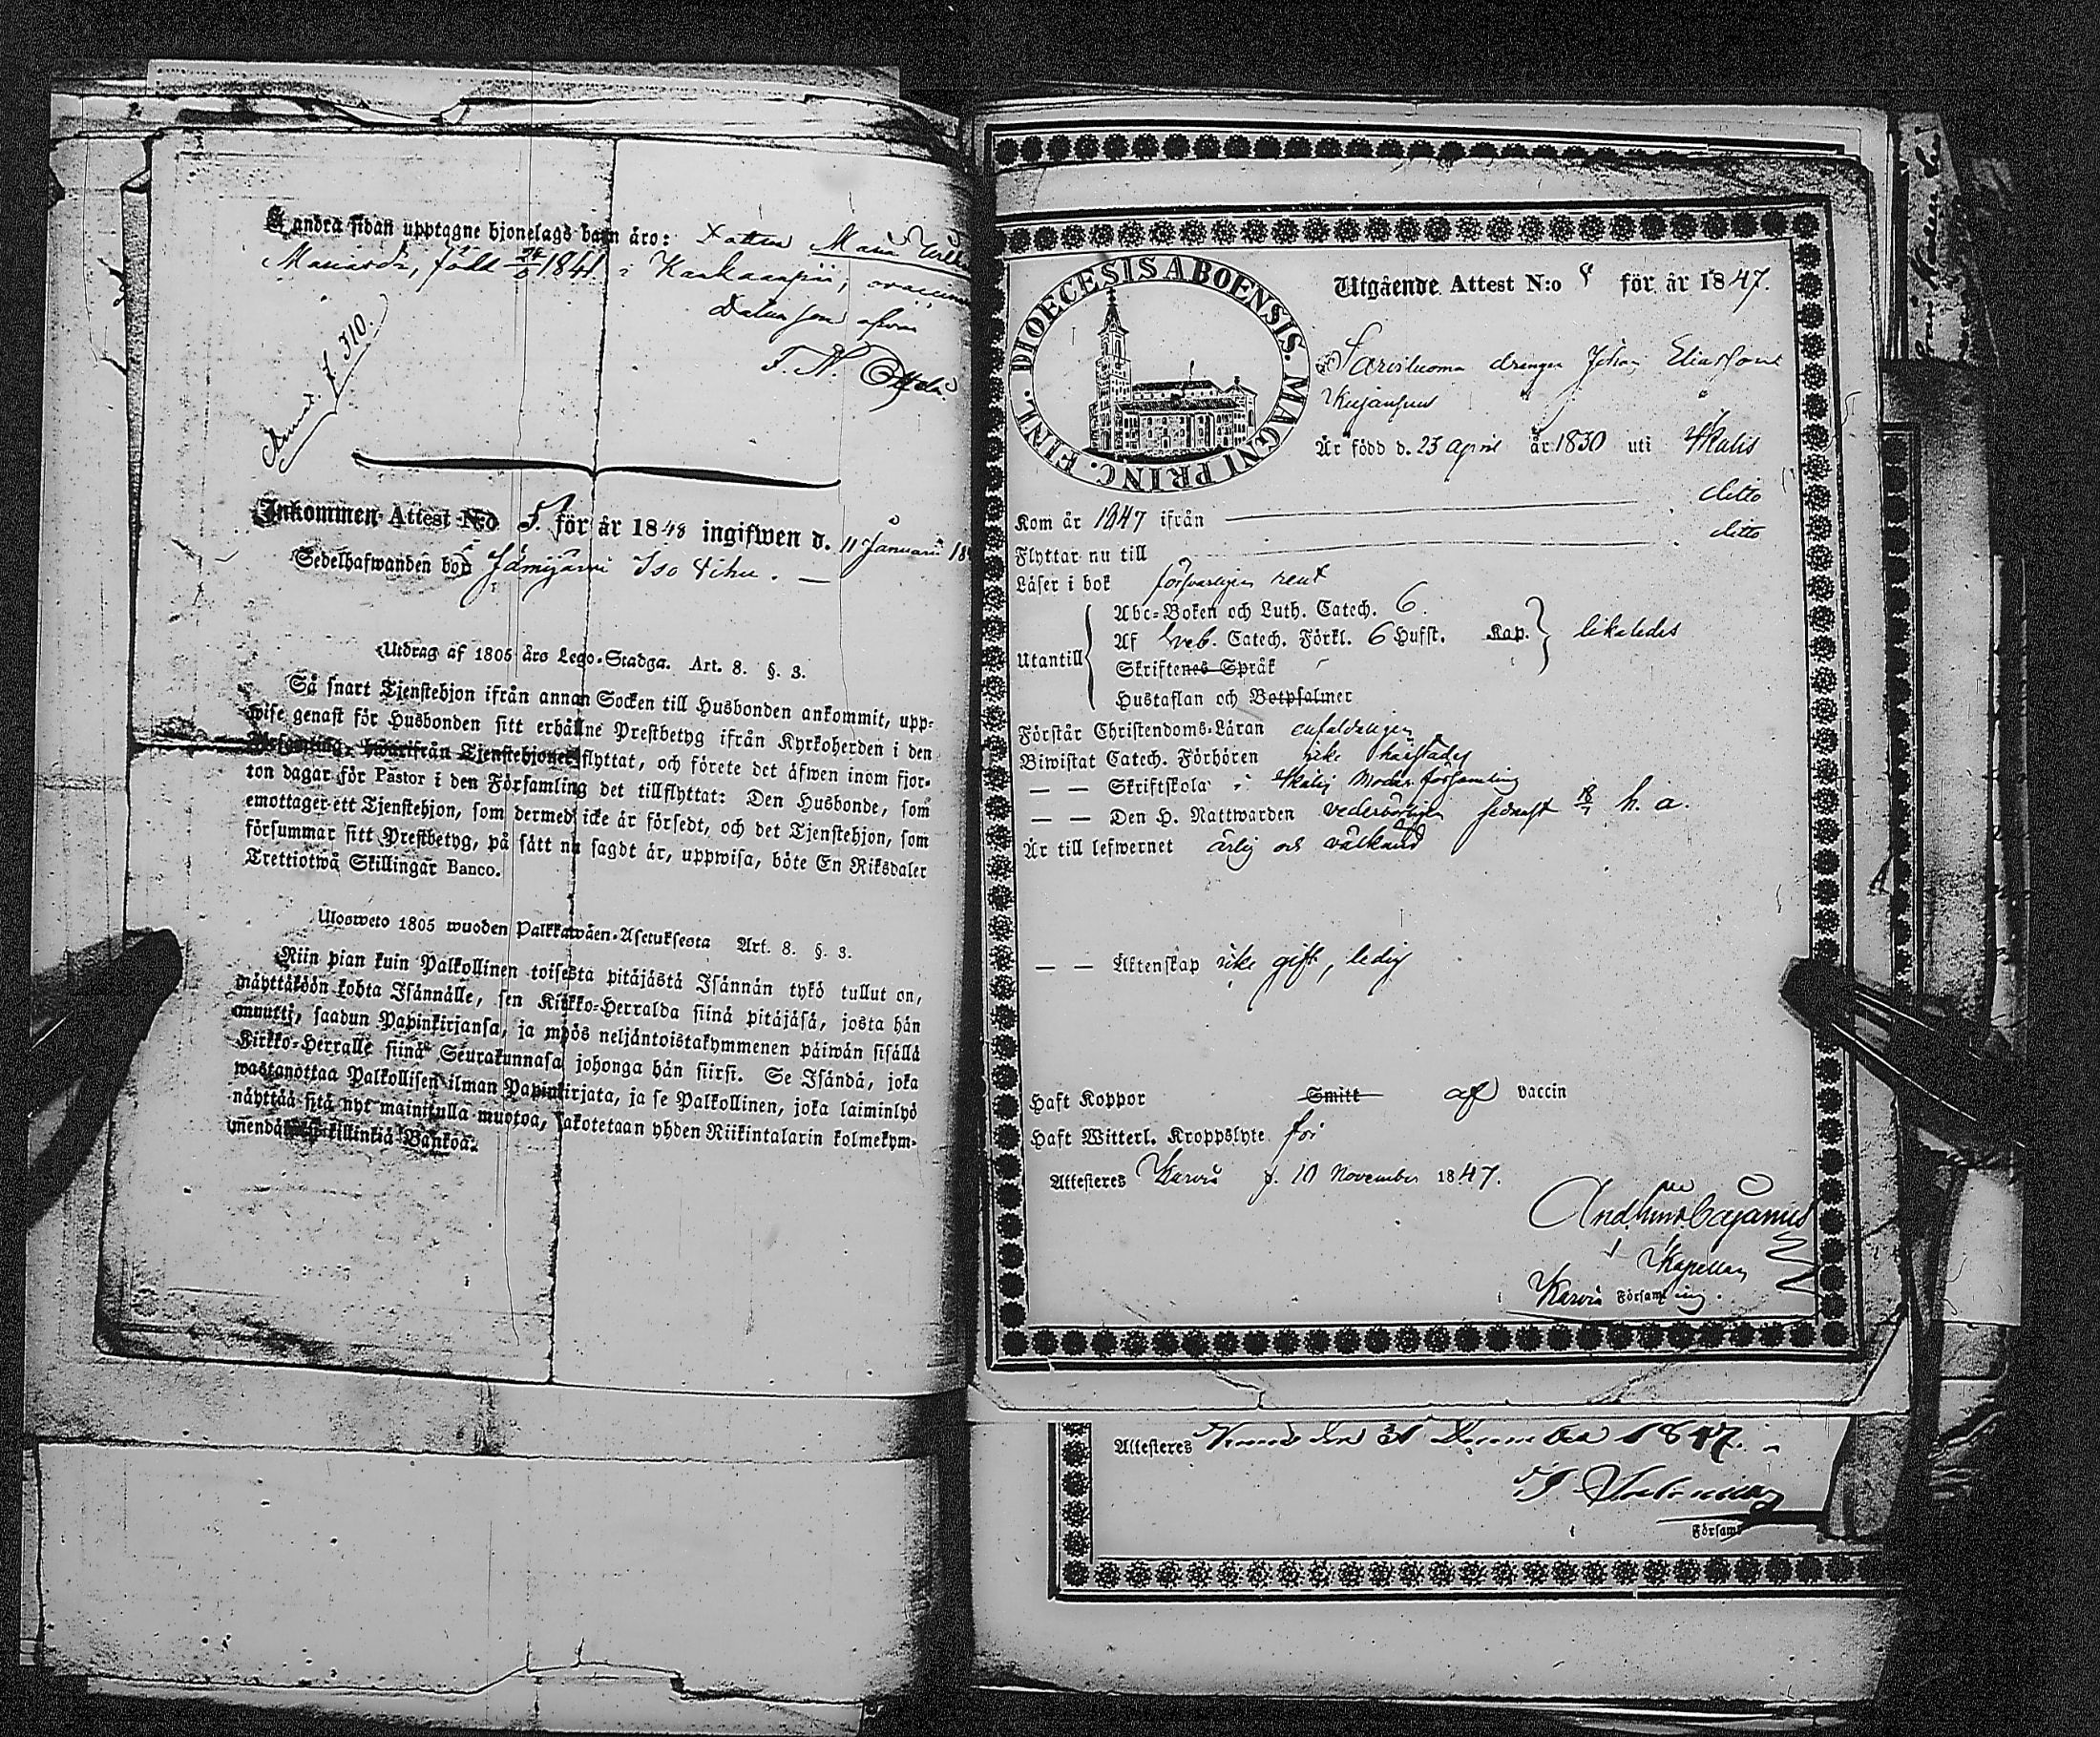 Å andra sidan upptagne hjonelags barn äro: Dottren Maria
född 1841 i Kankaanpää,
Datum som ofvan
310.
Inkommen Attest N:o 5 för år 1848 ingifwen d. 11 Januarii 18
Sedelhafwanden bor å Jämijärvi Iso Vihu. —
Utdrag af 1805 års Lego-Stadga. Art. 8. §. 3.
Så snart Tjenstehjon ifrån annan Socken till Husbonden ankommit, upp-
wise genast för Husbonden sitt erhållne Prestbetyg ifrån Kyrkoherden i den
Församling, hwarifrån Tjenstehjonet flyttat, och förete det äfwen inom fjor-
ton dagar för Pastor i den Församling det tillflyttat: Den Husbonde, som
emottager ett Tjenstehjon, som dermed icke är försedt, och det Tjenstehjon, som
försummar sitt Prestbetyg, på sätt nu sagdt är, uppwisa, böte En Riksdaler
Trettiotwå Skillingar Banco.
Ulosweto 1805 wuoden Palkkawäen-Asetuksesta Art. 8. §. 3.
Niin pian kuin Palkollinen toisesta pitäjästä Isännän tykö tullut on,
näyttäköön kohta Isännälle, sen Kirkko-Herralda siinä pitäjäsä, josta hän
muutti, saadun Papinkirjansa, ja myös neljäntoistakymmenen päiwän sisällä
Kirkko-Herralle siinä Seurakunnasa johonga hän siirsi. Se Isändä, joka
wastanottaa Palkollisen ilman Papinkirjata, ja se Palkollinen, joka laiminlyö
näyttää sitä nyt mainitulla muotoa, sakotetaan yhden Riikintalarin kolmekym-
mendä killinkiä Bankoa.
DIOECESIS ABOENSIS. MAGNI PRINC. FINL.
Utgående Attest N:o 8 för år 1847.
Sarviluoma drängen Johan Eliasson
Är född d. 23 april år 1830 uti Ikalis
Kom år 1847 ifrån ditto
Flyttar nu till ditto
Läser i bok försvarligen rent
Utantill
Abc-Boken och Luth. Catech. 6.
Af Sveb. Catech. Förkl. 6 Hufst. Kap. likaledes
Skriftenes Språk
Hustaflan och Botpsalmer
Förstår Christendoms-Läran enfaldeligen
Biwistat Catech. Förhören icke härstädes
— — Skriftskola i Ikalis Moderförsamling
— — Den H. Nattwarden vederbörligen sednast h. a.
Är till lefwernet ärlig och välkänd
— — Äktenskap icke gift, ledig
Haft Koppor Smitt af vaccin
Haft Witterl. Kroppslyte fri
Attesteres Karvia d. 10 November 1847.
Cajanus
Kapellan
i Karvia Församling.
Attesteres den 31 December 1847.
i Församl